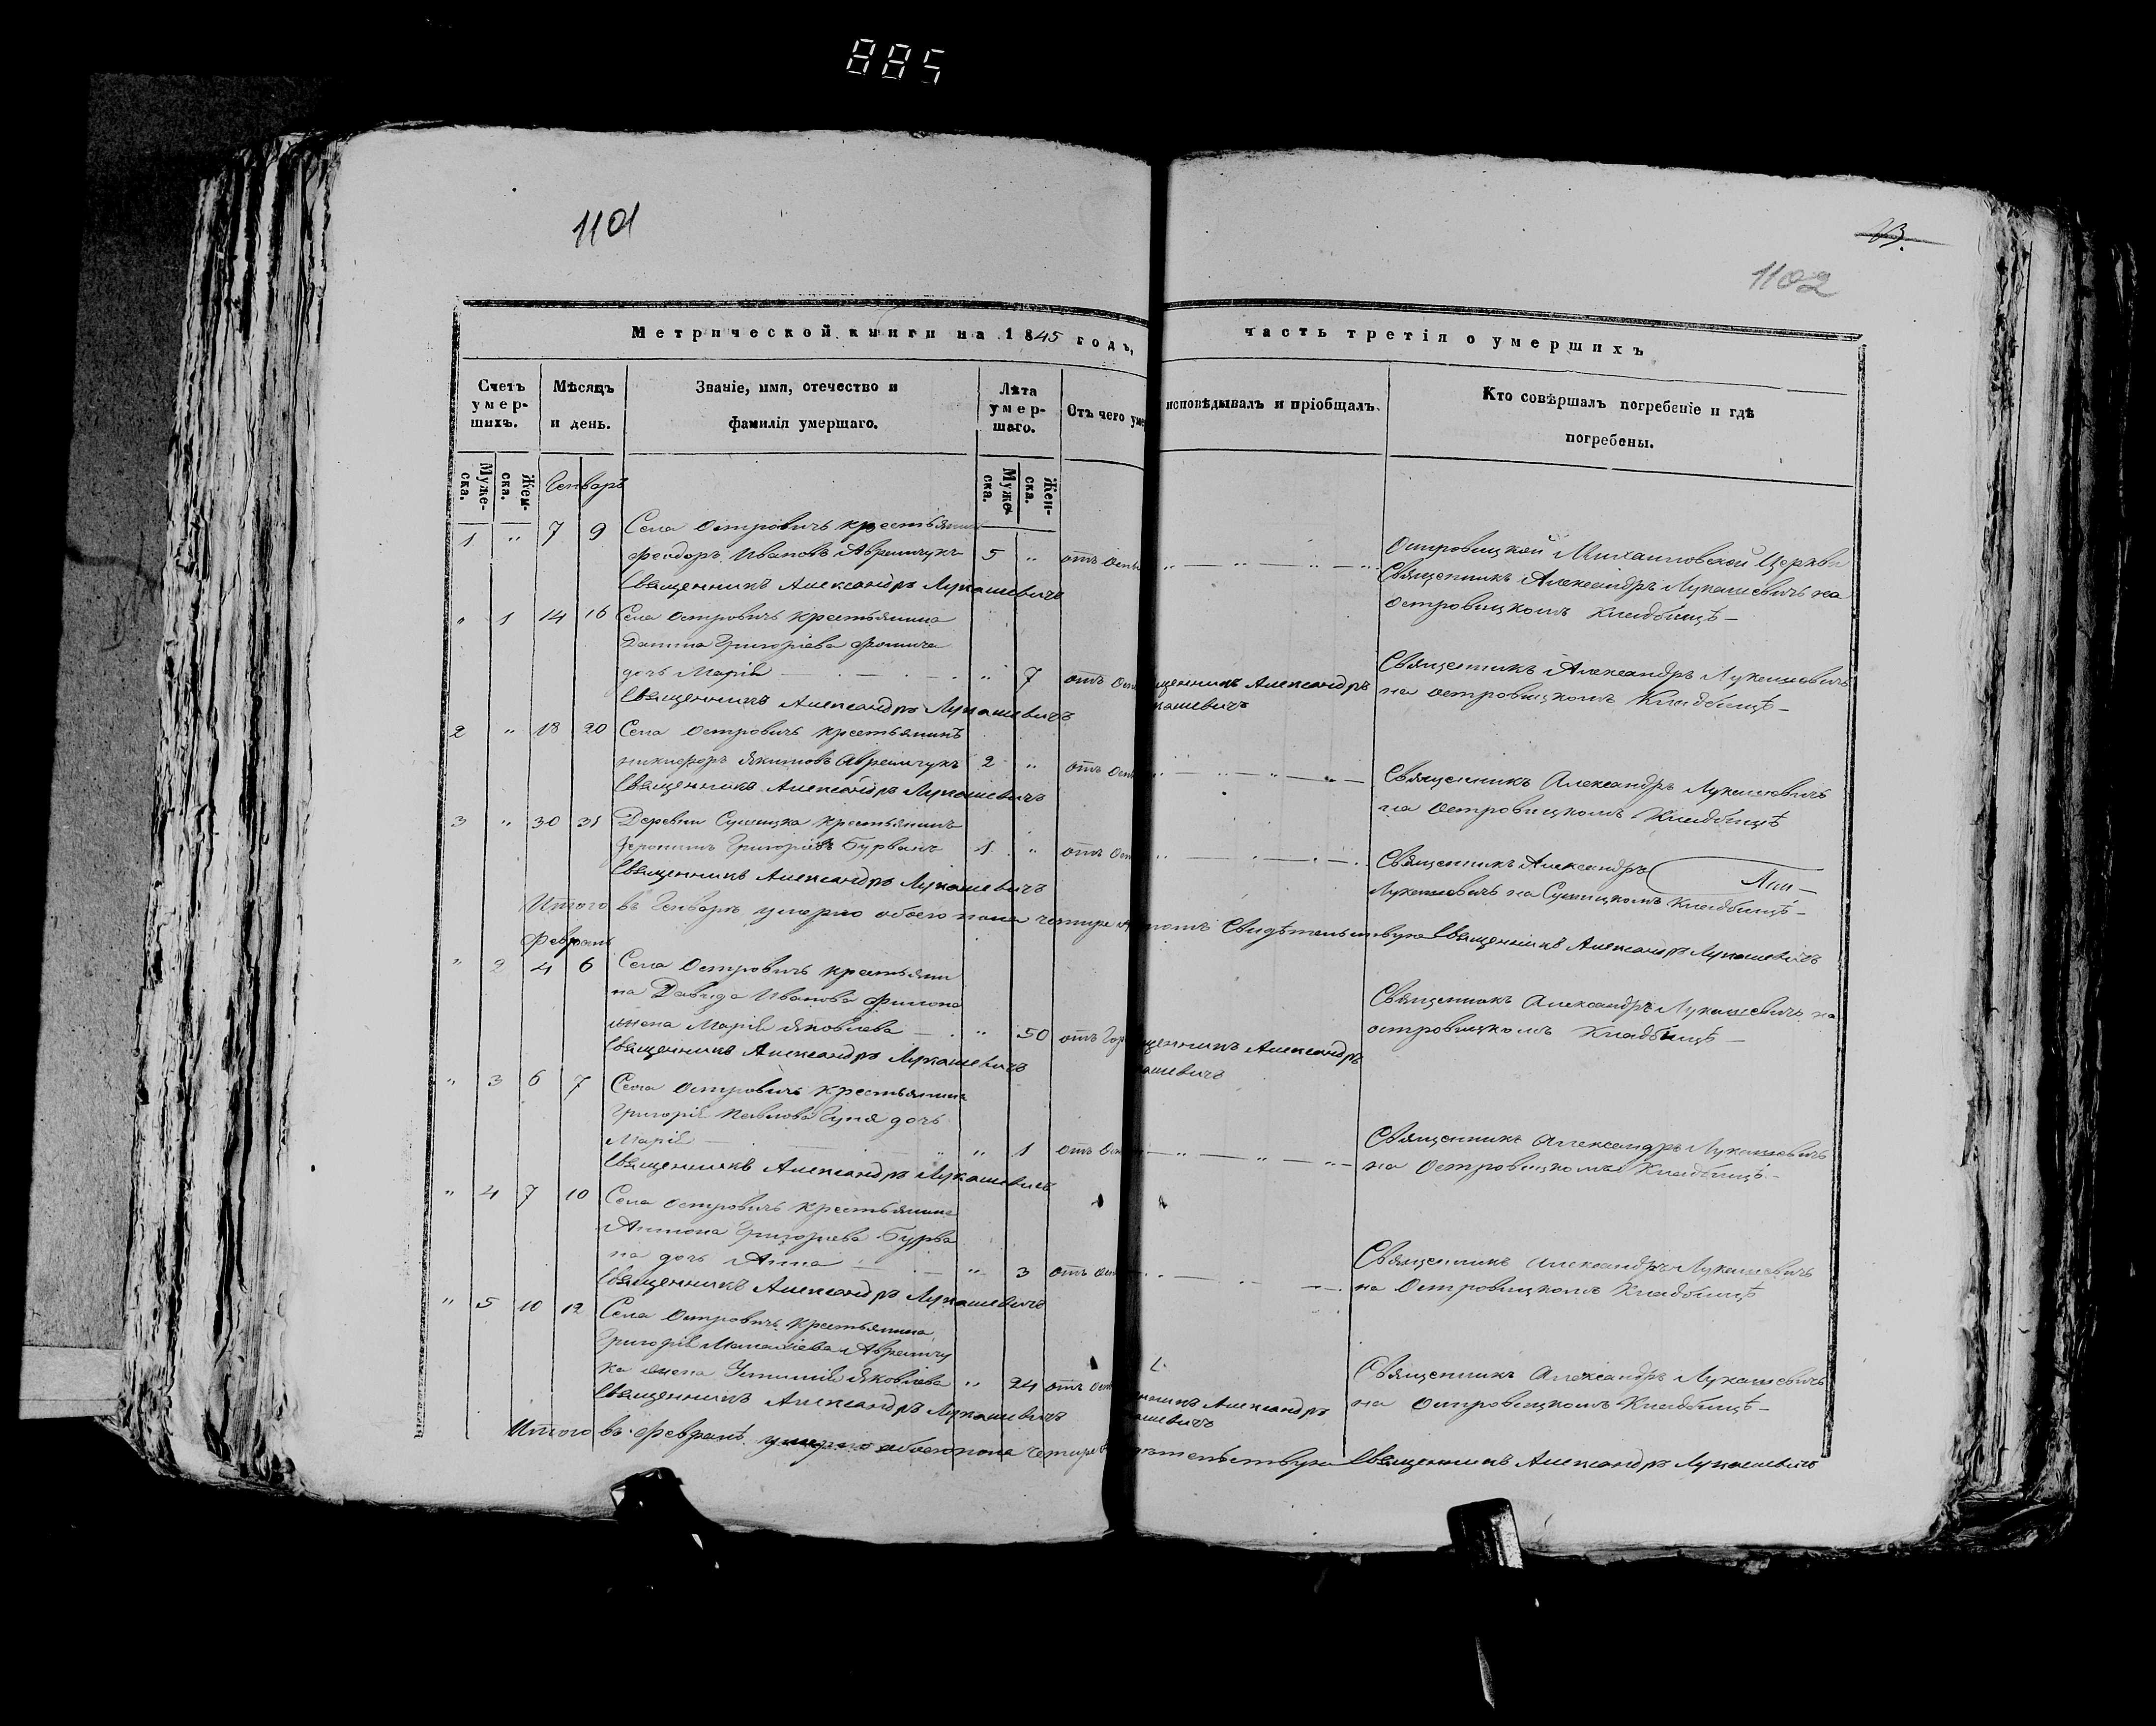 885
1101
1102
Метрической книги на 1845 годъ, часть третія о умершихъ
Счетъ умер-шихъ.
Мѣсяцъ и день.
Званіе, имя, отечество и фамилія умершаго.
Лѣта умер-шаго.
Отъ чего уме
исповѣдывалъ и пріобщалъ.
Кто совѣршалъ погребеніе и гдѣ погребены.
Муже-ска.
Жен-ска.
Генварь
Муже-ска.
Жен-ска.
1 " 7 9 Села Островичъ крестьянинъ
Феодоръ Ивановъ Авремчукъ 5 " отъ
Островицкой Михаиловской Церкви
Священникъ Александръ Лукашевичъ на
островицкомъ Кладбищѣ
Священникъ Александръ Лукашевичъ
" 1 14 16 Села Островичъ крестьянина
Данила Григоріева
дочь Марія " 7 отъ
щенникъ Александръ
кашевичъ
Священникъ Александръ Лукашевичъ
на островицкомъ Кладбищѣ
Священникъ Александръ Лукашевичъ
2 " 18 20 Села Островичъ крестьянинъ
никифоръ Якимовъ Авремчукъ 2 " отъ
Священникъ Александръ Лукашевичъ
на островицкомъ Кладбищѣ
Священникъ Александръ Лукашевичъ
3 " 30 31 Деревни Сушицка крестьянинъ
Григоріевъ Бурванъ 1 " отъ
Священникъ Александръ
Лукашевичъ на Сушицкомъ Кладбищѣ
Священникъ Александръ Лукашевичъ
Итого въ Генварѣ умерло обоего пола четыре
Свидѣтельствую Священникъ Александръ Лукашевичъ
Февраль
" 2 4 6 Села Островичъ крестьяни
на Давида Иванова Филона
жена Марія Яковлева " 50 отъ
щенникъ Александръ
кашевичъ
Священникъ Александръ Лукашевичъ на
островицкомъ Кладбищѣ
Священникъ Александръ Лукашевичъ
" 3 6 7 Села Островичъ крестьянина
Григорія Павлова дочь
Марія " 1 отъ
Священникъ Александръ Лукашевичъ
на Островицкомъ Кладбищѣ
Священникъ Александръ Лукашевичъ
" 4 7 10 Села Островичъ крестьянина
Антона Григоріева Бурва
на дочь Анна " 3 отъ
Священникъ Александръ Лукашевичъ
на Островицкомъ Кладбищѣ
Священникъ Александръ Лукашевичъ
" 5 10 12 Села Островичъ крестьянина
Григорія Авремчу
ка жена Яковлева " 24 отъ
нникъ Александръ
ашевичъ
Священникъ Александръ Лукашевичъ
на Островицкомъ Кладбищѣ
Священникъ Александръ Лукашевичъ
Итого въ Февралѣ умерло обоего пола четыре
дѣтельствую Священникъ Александръ Лукашевичъ